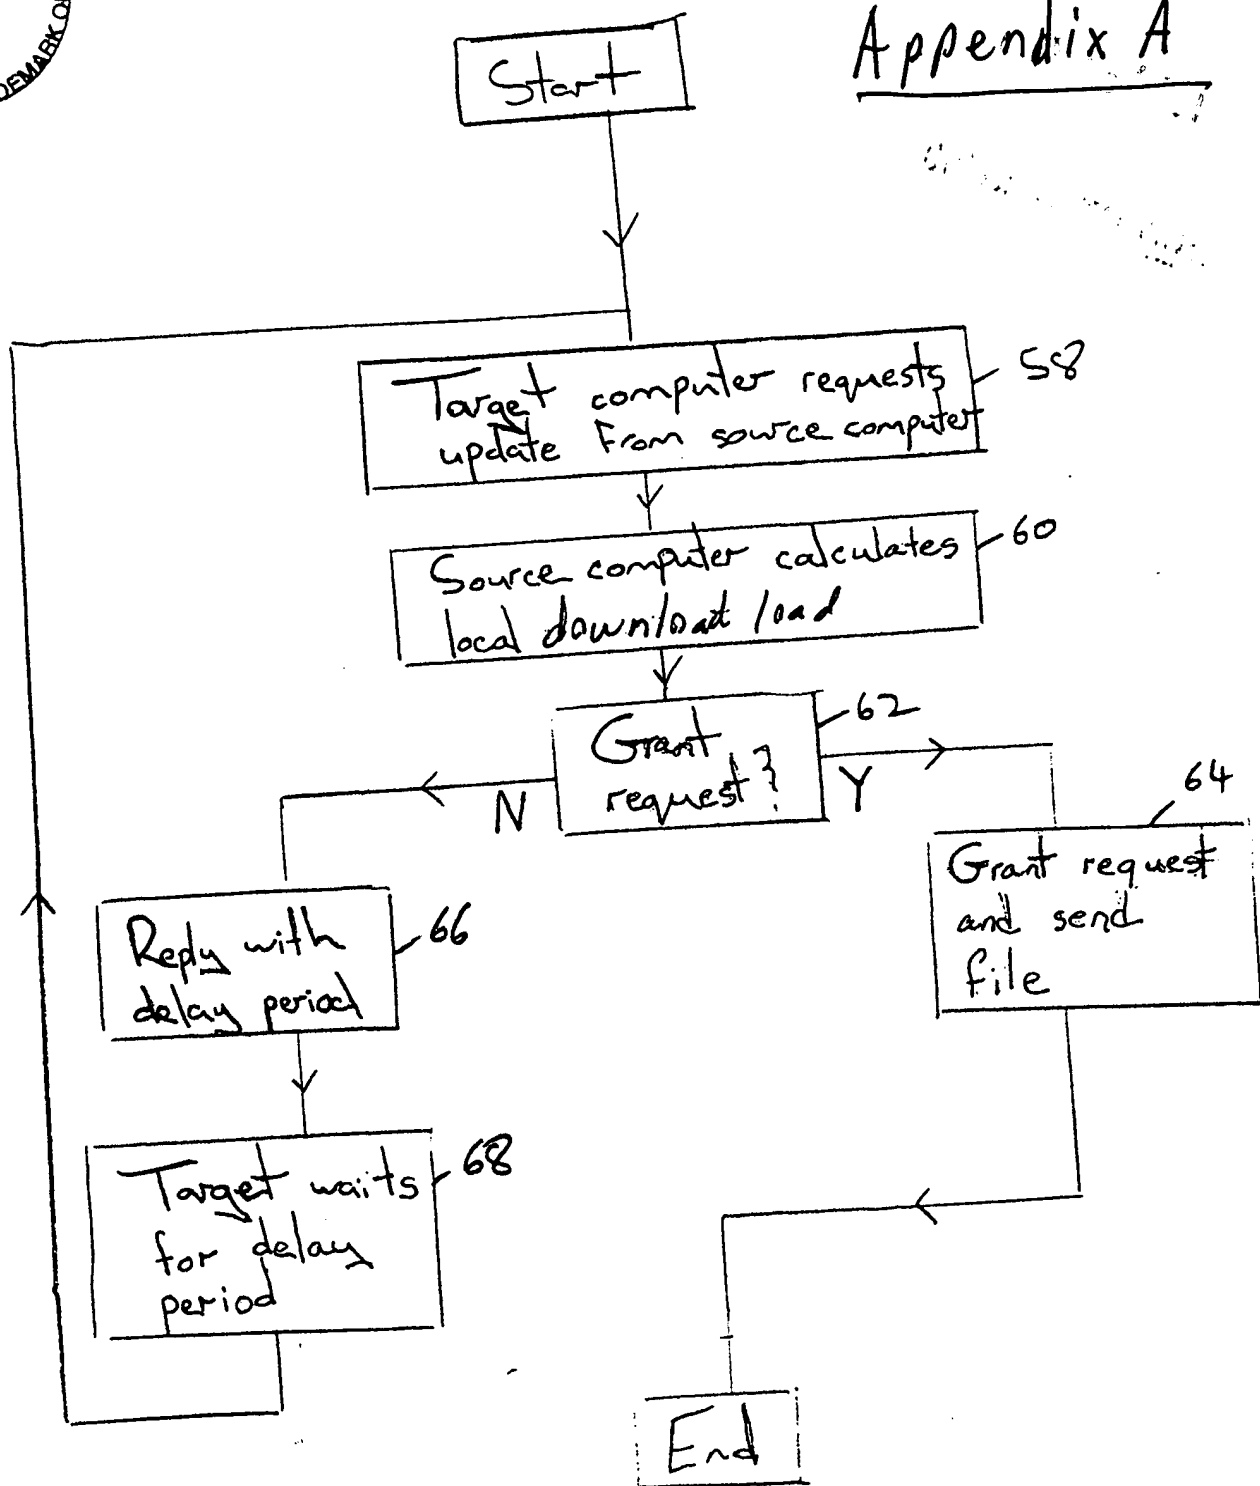 Appendix A
Start
Target computer requests
update from source computer
58
Source computer calculates
local download load
60
Grant
request?
62
N
Y
64
Grant request
and send
file
Reply with
delay period
66
Target waits
for delay
period
68
End